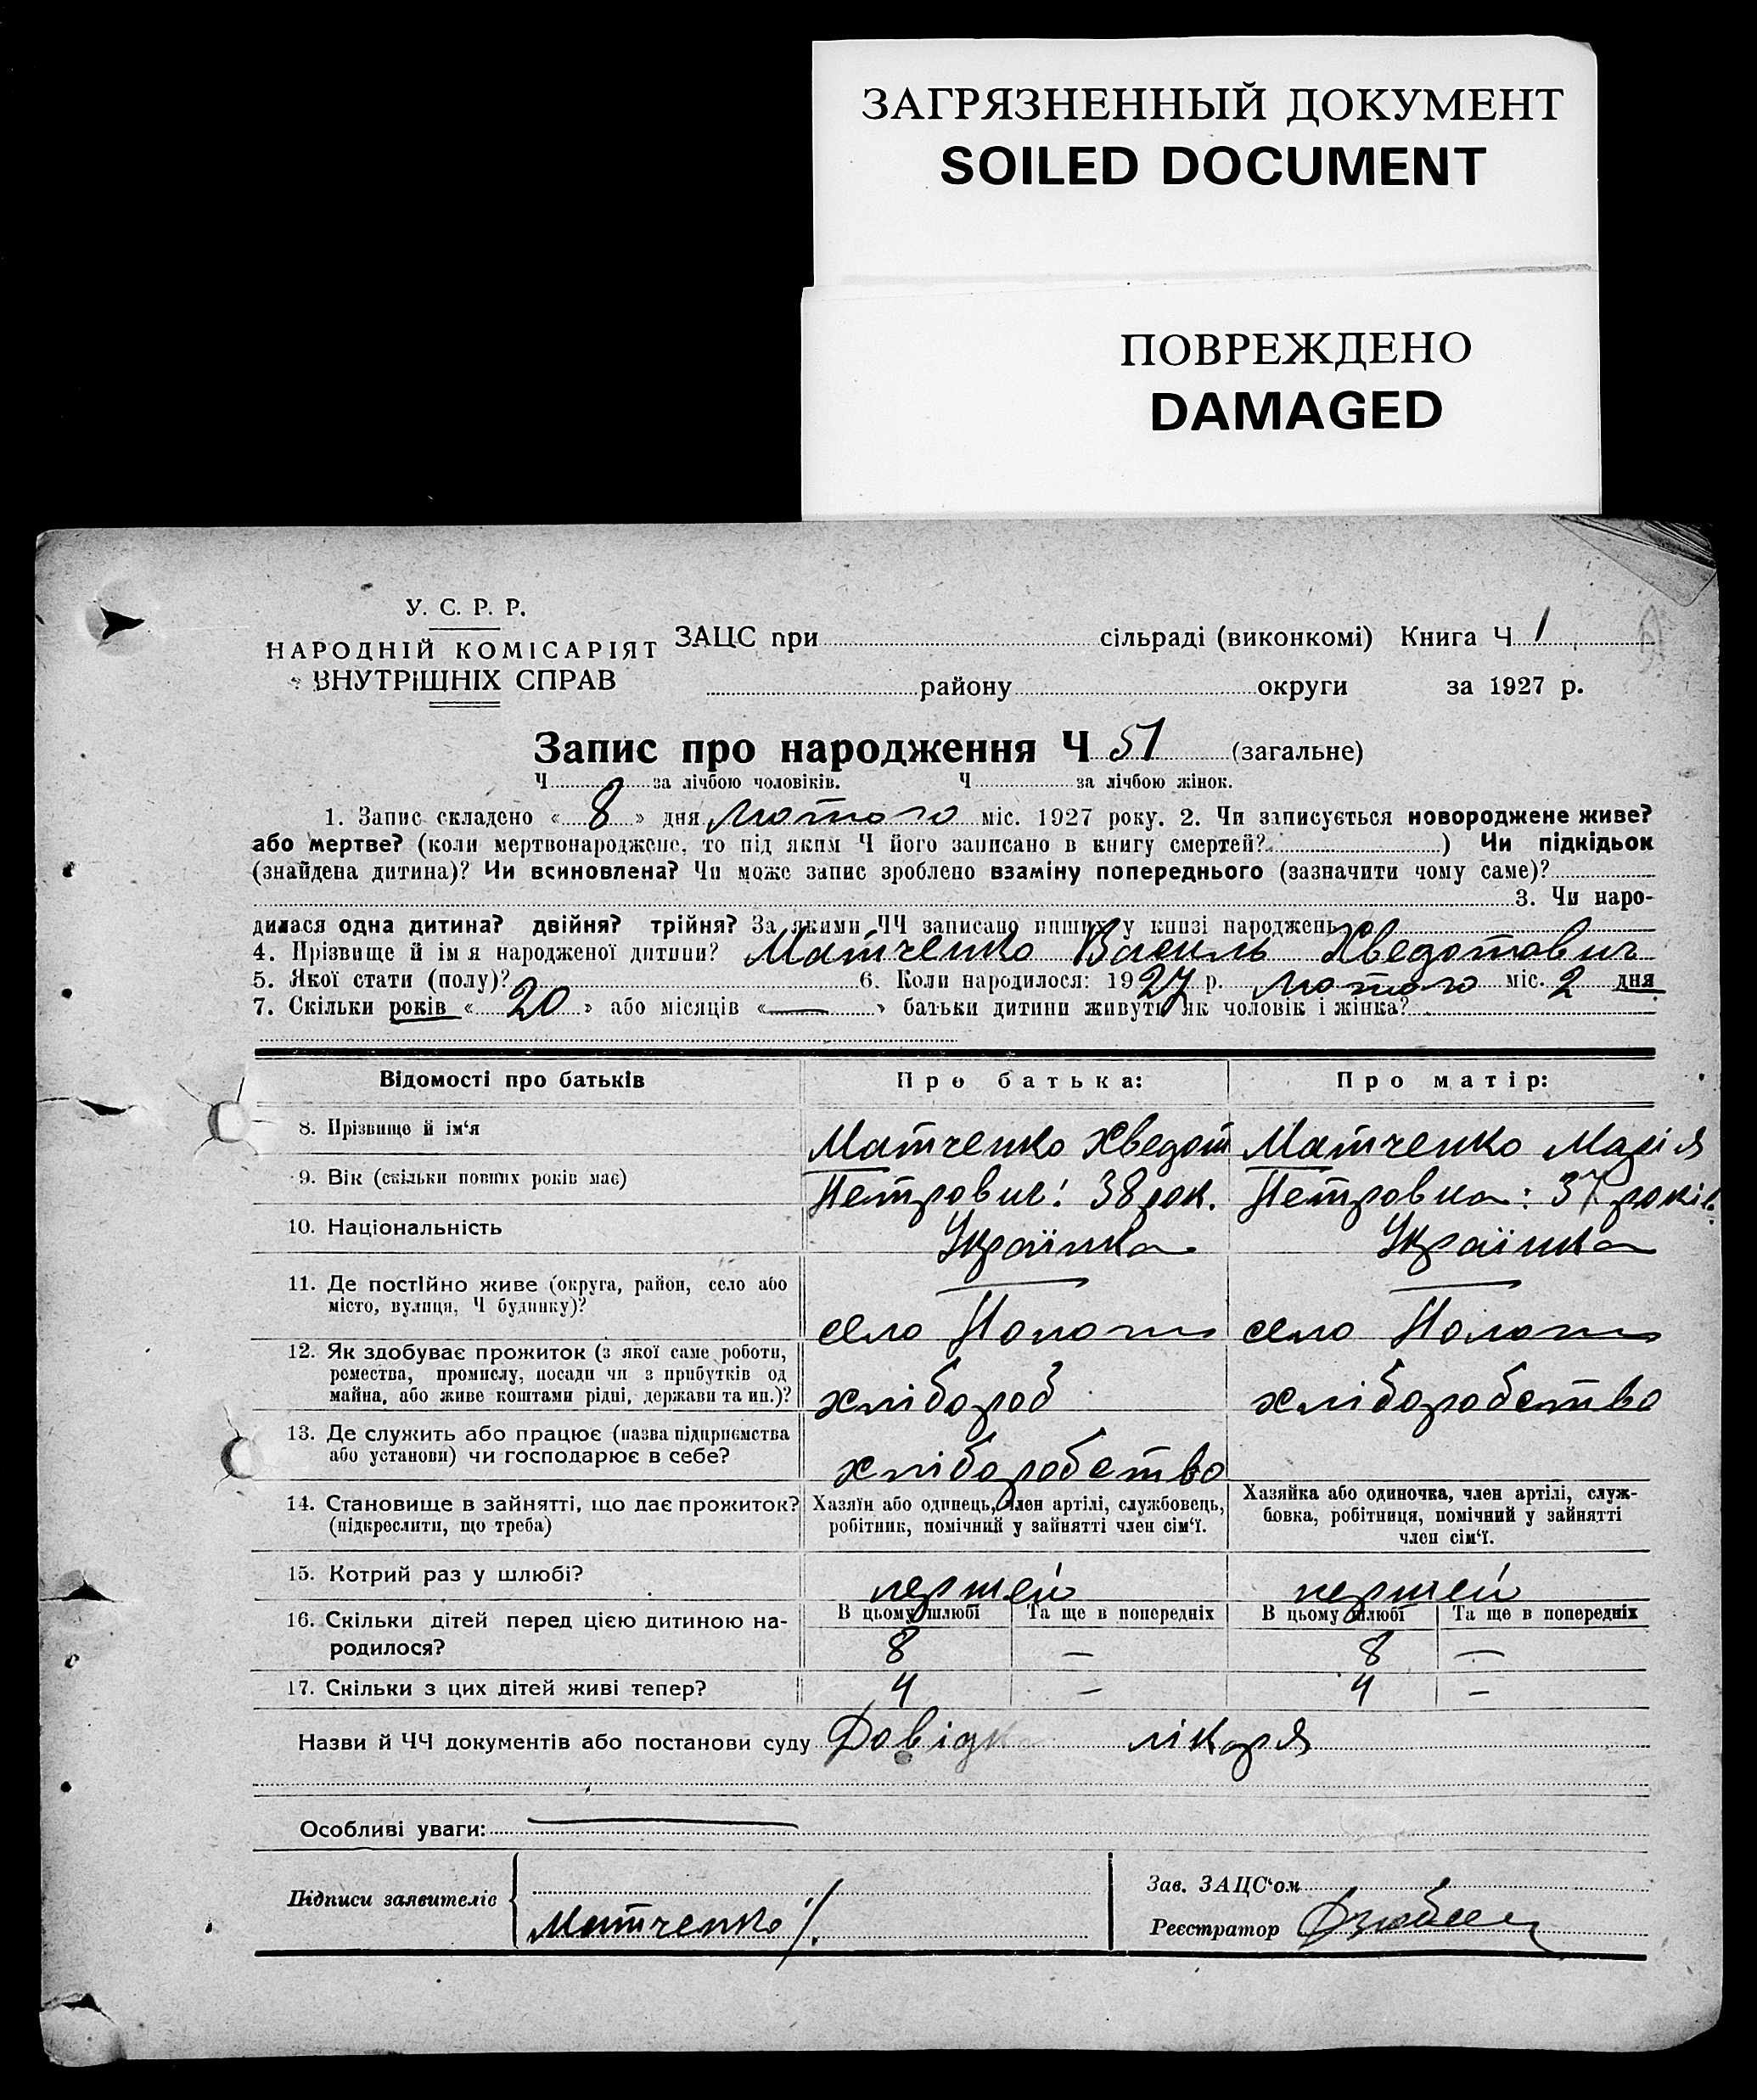 ЗАГРЯЗНЕННЫЙ ДОКУМЕНТ
SOILED DOCUMENT
ПОВРЕЖДЕНО
DAMAGED
У. С. Р. Р.
НАРОДНІЙ КОМІСАРІЯТ
ВНУТРІШНІХ СПРАВ
ЗАЦС при сільраді (виконкомі) Книга Ч 1
району округи за 1927 р.
Запис про народження Ч 51 (загальне)
Ч за лічбою чоловіків. Ч за лічбою жінок.
1. Запис складено « 8 » дня лютого міс. 1927 року. 2. Чи записується новороджене живе?
або мертве? (коли мертвонароджене, то під яким Ч його записано в книгу смертей? ) Чи підкідьок
(знайдена дитина)? Чи всиновлена? Чи може запис зроблено взаміну попереднього (зазначити чому саме)?
3. Чи наро-
дилася одна дитина? двійня? трійня? За якими ЧЧ записано инших у книзі народжень
4. Прізвище й ім я народженої дитини? Матченко Василь Хведотович
5. Якої стати (полу)? 6. Коли народилося: 1927 р. лютого міс. 2 дня
7. Скільки років « 20 » або місяців « — » батьки дитини живуть як чоловік і жінка?
Відомості про батьків Про батька: Про матір:
8. Прізвище й ім‘я Матченко Хведот Матченко Марія
9. Вік (скільки повних років має) Петрович: 38 рок. Петровна: 37 років.
10. Національність Українка Українка
11. Де постійно живе (округа, район, село або
місто, вулиця, Ч будинку)? село Пологи село Пологи
12. Як здобуває прожиток (з якої саме роботи,
ремества, промислу, посади чи з прибутків од
майна, або живе коштами рідні, держави та ин.)? хлібороб хліборобство
13. Де служить або працює (назва підприємства
або установи) чи господарює в себе? хліборобство
14. Становище в зайнятті, що дає прожиток?
(підкреслити, що треба)
Хазяїн або одинець, член артілі, службовець,
робітник, помічний у зайнятті член сім‘ї.
Хазяйка або одиночка, член артілі, служ-
бовка, робітниця, помічний у зайнятті
член сім‘ї.
15. Котрий раз у шлюбі? першей першей
16. Скільки дітей перед цією дитиною на-
родилося?
В цьому шлюбі Та ще в попередніх В цьому шлюбі Та ще в попередніх
8 — 8 —
17. Скільки з цих дітей живі тепер? 4 — 4 —
Назви й ЧЧ документів або постанови суду Довідка лікаря
Особливі уваги:
Підписи заявителів
Матченко
Зав. ЗАЦС‘ом
Реєстратор